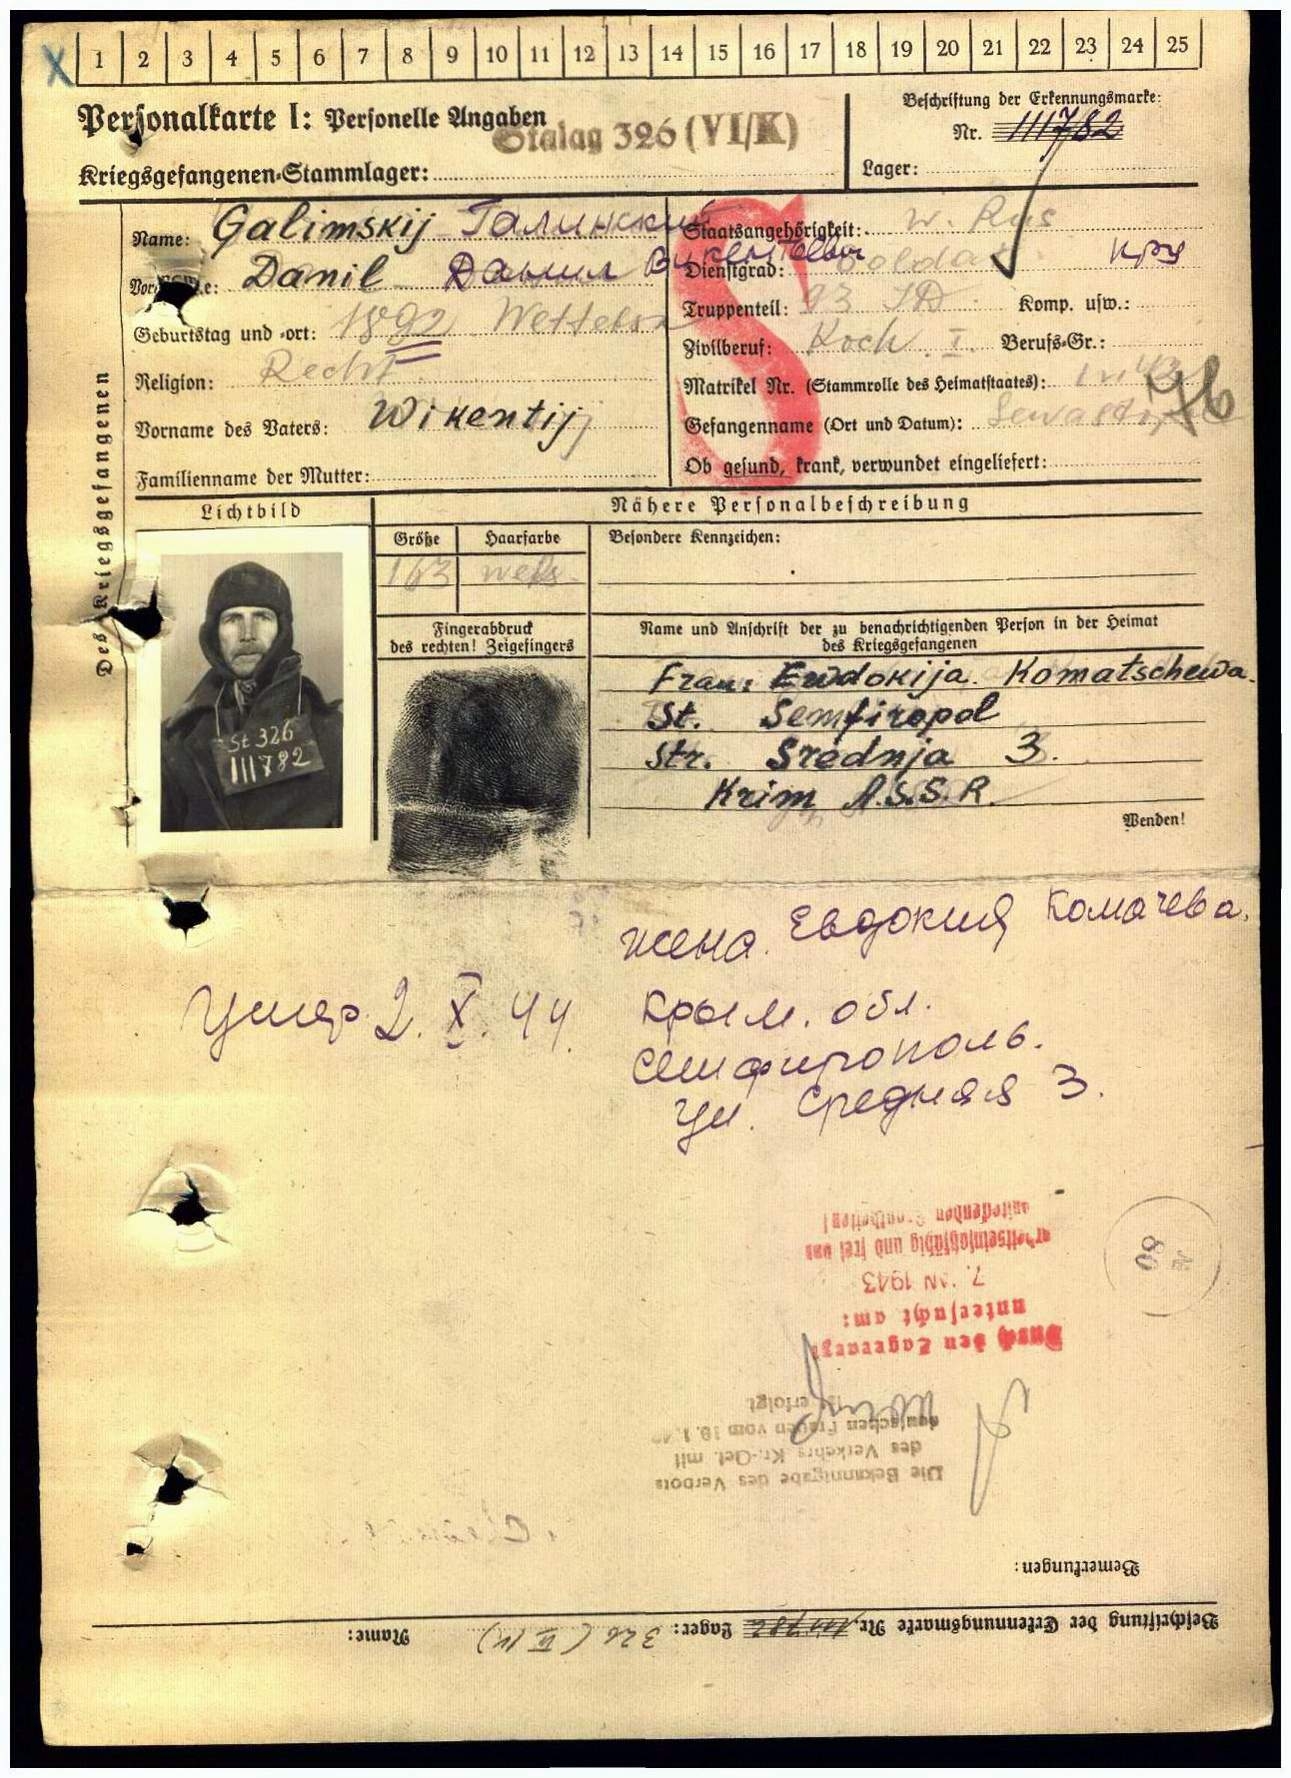 X 1 2 3 4 5 6 7 8 9 10 11 12 13 14 15 16 17 18 19 20 21 22 23 24 25
Personalkarte I: Personelle Angaben
Stalag 326 (VI/K)
Kriegsgefangenen-Stammlager:
Beschriftung der Erkennungsmarke:
Nr. 111782
Lager:
Des Kriegsgefangenen
Name: Galimskij Галинский
Vorname: Danil Данил Викентьевич
Geburtstag und -ort: 1892
Religion:
Vorname des Vaters: Wikentij
Familienname der Mutter:
S
Staatsangehörigkeit: W. Rus
Dienstgrad: Soldat кру
Truppenteil: 93 ID Komp. usw.:
Zivilberuf: Koch I. Berufs-Gr.:
Matrikel Nr. (Stammrolle des Heimatstaates):
76
Gefangenname (Ort und Datum):
Ob gesund, krank, verwundet eingeliefert:
Lichtbild
Nähere Personalbeschreibung
Größe Haarfarbe
163
Besondere Kennzeichen:
St 326
111782
Fingerabdruck
des rechten! Zeigefingers
Name und Anschrift der zu benachrichtigenden Person in der Heimat
des Kriegsgefangenen
Frau: Ewdokija Komatschewa.
St. Semfiropol
Str. Srednja 3.
Krim A.S.S.R.
Wenden!
жена. Евдокия Комачева.
Умер 2. X. 44.
Крым. обл.
Симфирополь.
Ул. Средняя 3.
Beschriftung der Erkennungsmarke Nr. 111782 Lager: 326 (VI K) Name:
Bemerkungen:
Die Bekanntgabe des Verbots
des Verkehrs Kr.-Gef. mit
deutschen Frauen vom
ist erfolgt
Durch den Lagerarzt
untersucht am:
7. JAN 1943
arbeitseinsatzfähig und frei von
ansteckenden Krankheiten!
80